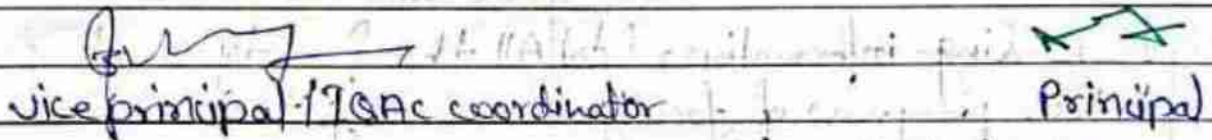 vice principal / IQAC coordinator Principal